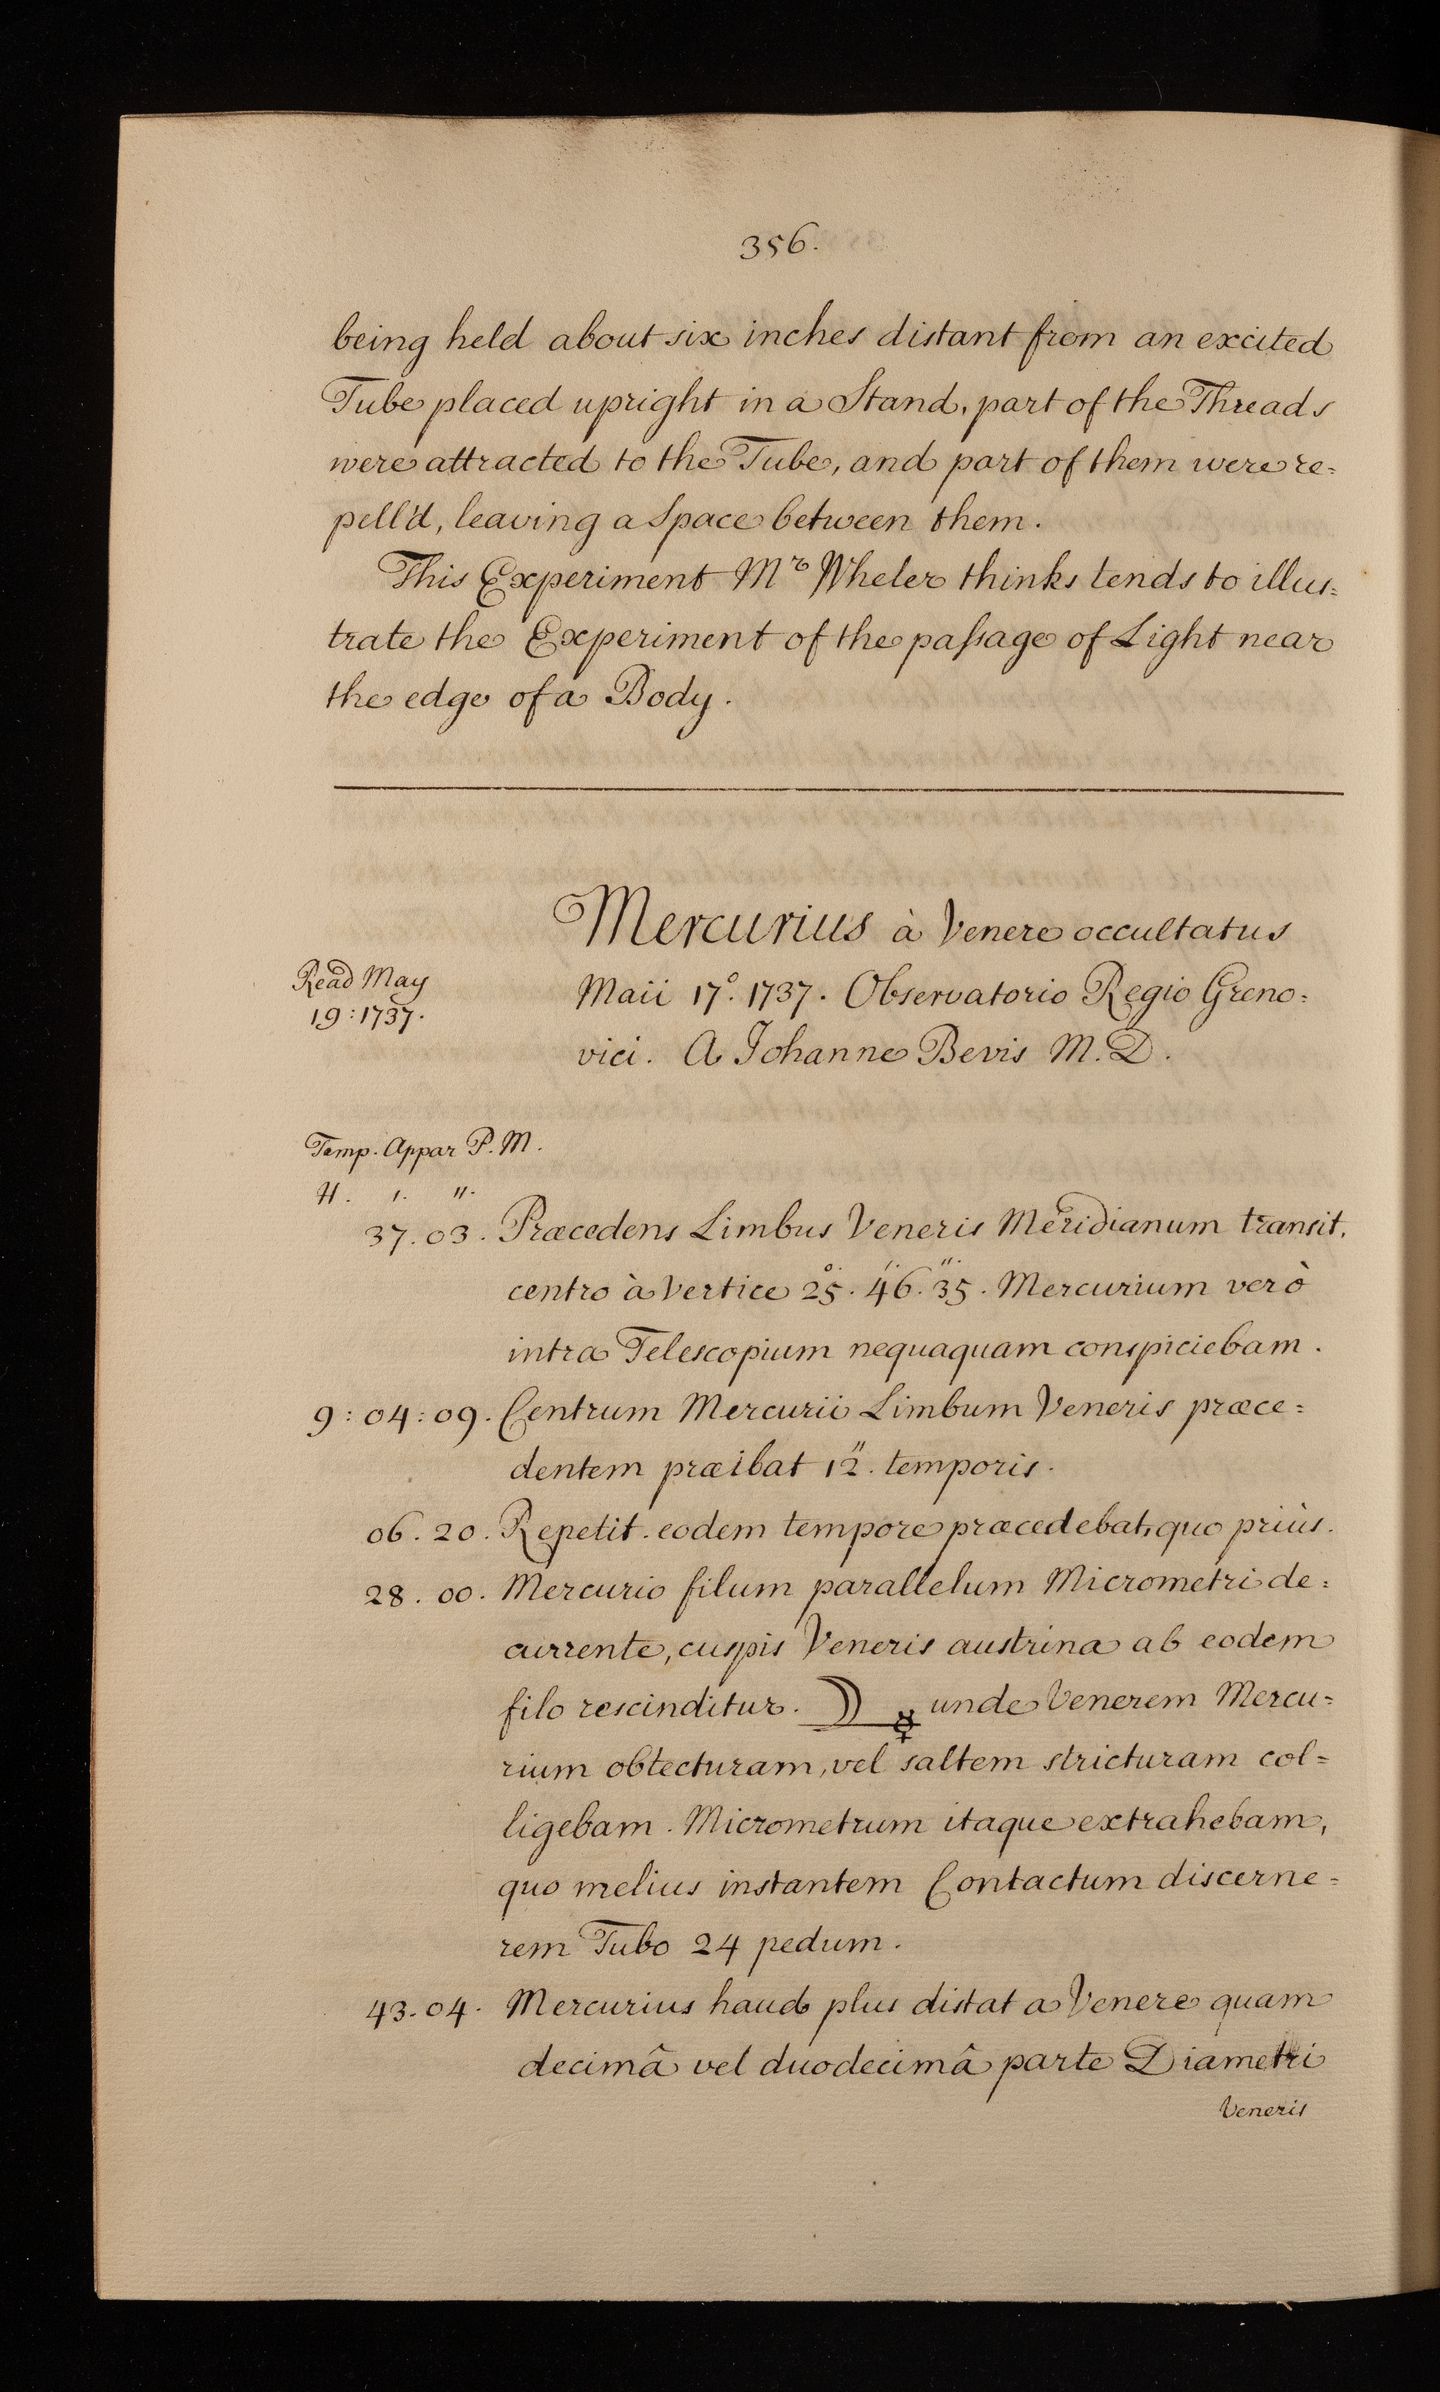 356.
being held about six inches distant from an excited
Tube placed upright in a Stand, part of the Threads
were attracted to the Tube, and part of them were re=
pell'd, leaving a Space between them.
This Experiment Mr Wheler thinks tends to illus=
trate the Experiment of the paſsage of Light near
the edge of a Body.
Mercurius à Venere occultatus
Read May
19:1737.
Maii 17°. 1737. Observatorio Regio Greno=
vici. A Johanne Bevis M.D.
Temp. Appar P.M.
H. ı. ıı.
37.03. Præcedens Limbus Veneris Meridianum transit,
centro à Vertice 25°. 46'. 35''. Mercurium verò
intra Telescopium nequaquam conspiciebam.
9:04:09. Centrum Mercurii Limbum Veneris præce=
dentem præibat 12''. temporis.
06.20. Repetit. eodem tempore præcedebat, quo priùs.
28.00. Mercurio filum parallelum Micrometri de=
currente, cuspis Veneris austrina ab eodem
filo rescinditur. ☿ unde Venerem Mercu=
rium obtecturam, vel saltem stricturam col=
ligebam. Micrometrum itaque extrahebam,
quo melius instantem Contactum discerne=
rem Tubo 24 pedum.
43.04. Mercurius haud plus distat a Venere quam
decimâ vel duodecimâ parte Diametri
Veneris